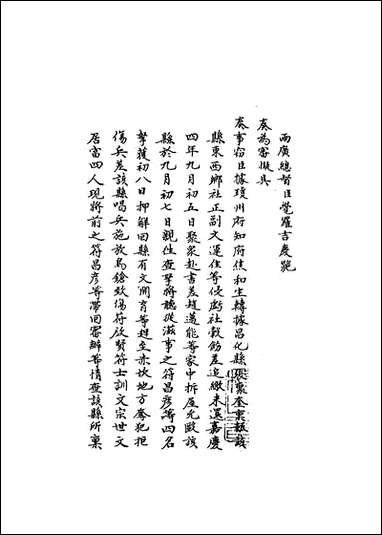 兩廣總督臣覺羅吉慶跪
奏為審擬具
奏事竊臣據瓊州府知府焦和生轉據昌化縣張聚奎稟報該
縣東西鄉社正副文運佳等侵虧社穀飭差追繳未還嘉慶
四年九月初五日聚眾赴書差趙邁能等家中拆屋兇毆該
縣於九月初七日親往查拏將聽從滋事之符昌彥等四名
拏獲初八日押解回縣有文開育等趕至赤坎地方奪犯拒
傷兵差該縣喝兵施放鳥鎗致傷符啟賢符士訓文宗世文
居富四人現將前之符昌彥等帶回審辦等情查該縣所稟